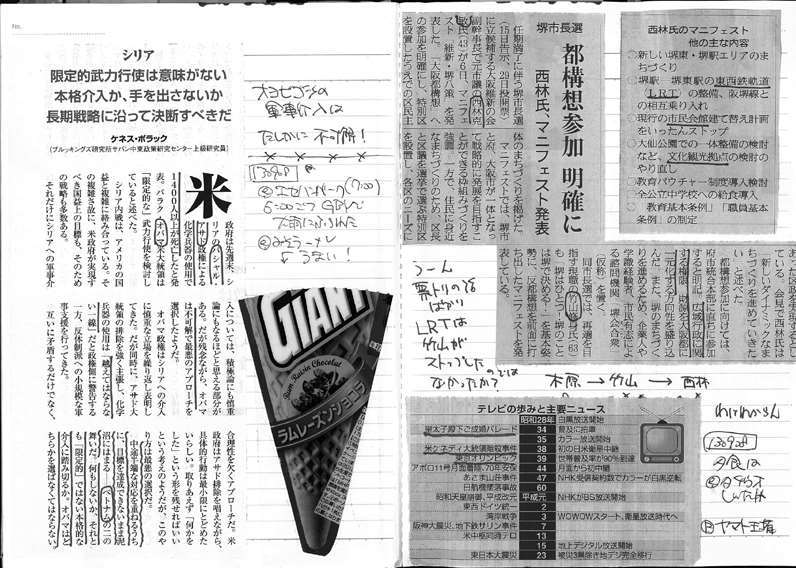 シリア
限定的武力行使は意味がない
本格介入か、手を出さないか
長期戦略に沿って決断すべきだ
ケネス・ポラック
(ブルッキングズ研究所サバン中東政策研究センター上級研究員)
米
政府は先週末、シ
リアのバシャル・
アサド政権による
化学兵器の使用で
1400人以上が死亡したと発
表。バラク・オバマ米大統領は
「限定的な」武力行使を検討し
ていると述べた。
シリア内戦は、アメリカの国
益と複雑に絡み合っている。そ
の複雑さ故に、米政府が実現す
べき国益上の目標も、そのため
の戦略も多数ある。
それだけにシリアへの軍事介
入については、積極論にも慎重
論にもなるほどと思える部分が
ある。だが残念ながら、オバマ
は不可解で最悪のアプローチを
選択したようだ。
オバマ政権はシリアへの介入
に慎重な立場を繰り返し表明し
てきた。だが同時に、アサド大
統領の排除を強く主張し、化学
兵器の使用は「越えてはならな
い一線」だと政権側に警告する
一方、反体制派への小規模な軍
事支援を行ってきた。
互いに矛盾するだけでなく、
合理性を欠くアプローチだ。米
政府はアサド排除を唱えながら、
具体的行動は最小限にとどめた
いらしい。取りあえず「何かを
した」という形を残せればいい
という考えのようだが、このや
り方は最悪の選択だ。
中途半端な対応を重ねるうち
に、目標を達成できないまま泥
沼にはまる——ベトナムの二の
舞いだ。何もしないか、それと
も「限定的」ではない本格的な
介入に踏み切るか。オバマはど
ちらかを選ばなくてはならない。
軍事介入は
たしかに不可解!
130908
うまい!
GIANT
Rum Raisin Chocolat
ラムレーズンショコラ
堺市長選
都構想参加 明確に
西林氏、マニフェスト発表
任期満了に伴う堺市長選
(15日告示、29日投開票)
に立候補する大阪維新の会
表した。「大阪都構想」へ
の参加を明確にし、特別区
を設置したうえでの区民主
体のまちづくりを掲げた。
マニフェストでは、堺市
と府、大阪市が一体となっ
て戦略的に発展を目指すこ
とができる枠組みづくりを
強調。一方で、住民に身近
な区議を選挙で選ぶ特別区
を設置し、各区のニーズに
西林氏のマニフェスト
他の主な内容
○新しい堺東・堺駅エリアのま
ちづくり
○堺駅—堺東駅の東西鉄軌道
(LRT)の整備、阪堺線と
の相互乗り入れ
○現行の市民会館建て替え計画
をいったんストップ
○大仙公園での一体整備の検討
など、文化観光拠点の検討の
やり直し
○教育バウチャー制度導入検討
○全公立中学校への給食導入
○「教育基本条例」「職員基本
条例」の制定
あった区語を
新しいダイナミックなま
ちづくりを進めていきた
い」と述べた。
都構想参加に向けては、
府市統合本部に直ちに参加
すると明記。広域行政に関
する権限、財源を大阪都に
一元化する方向性を盛り込
んだ。また、堺のまちづく
りを進めるため、企業人や
学識経験者、市民有志によ
る諮問機関「堺会合衆(
仮称)」を置く。
同市長選には、再選を目
指す現職の竹山修身氏(63)
も「堺はひとつ。堺のこと
は堺で決める」を基本姿
勢に、反都構想を前面に打
ち出したマニフェストを発
表している。
うーん
票トリの話
ばかり
LRTは
竹山が
ストップした
のでは
なかったか?
木原→竹山→西林
テレビの歩みと主要ニュース
昭和28年 白黒放送開始
皇太子殿下ご成婚パレード 34 普及に拍車
35 カラー放送開始
米ケネディ大統領暗殺事件 38 初の日米衛星中継
東京オリンピック 39 世帯普及率が90%到達
アポロ11号月面着陸、70年安保 44 月面から初中継
あさま山荘事件 47 NHK受信契約数でカラーが白黒逆転
日航機墜落事故 60
昭和天皇崩御、平成改元 平成元 NHKがBS放送開始
東西ドイツ統一 2
湾岸戦争 3 WOWOWスタート、衛星放送時代へ
阪神大震災、地下鉄サリン事件 7
米中枢同時テロ 13
15 地上デジタル放送開始
東日本大震災 23 被災3県除き地デジ完全移行
130908
夕食は